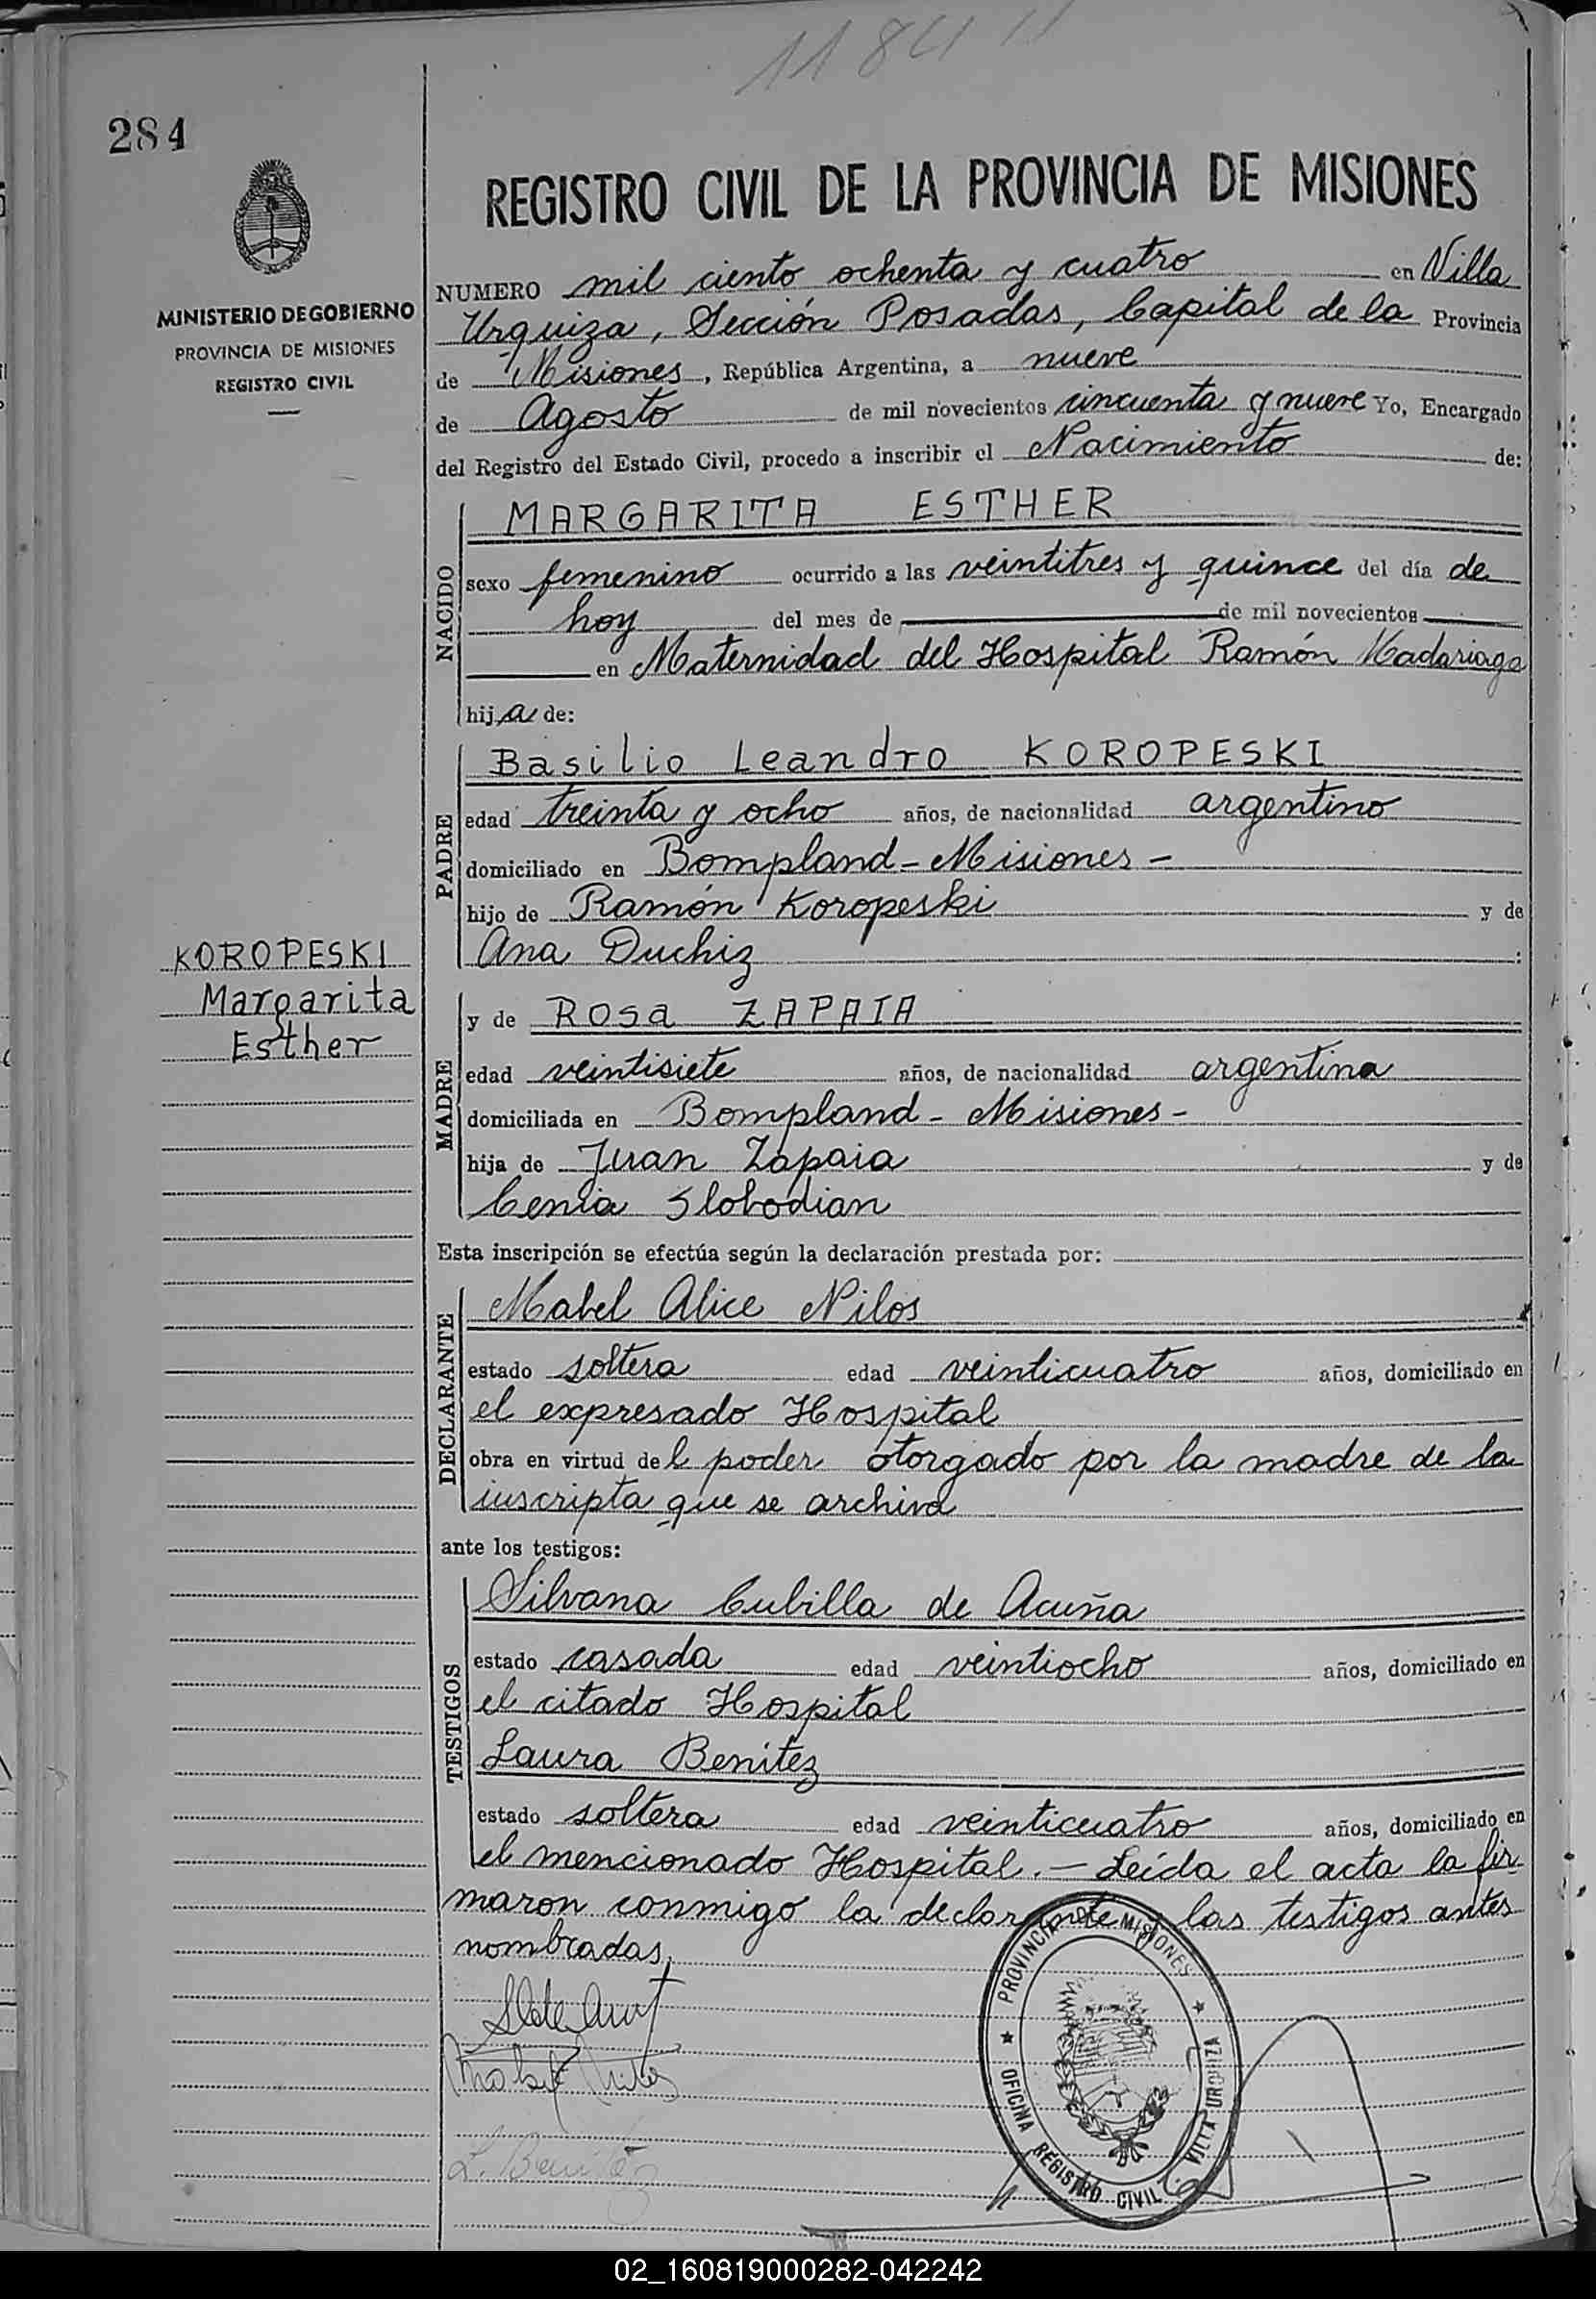 1184
284
REGISTRO CIVIL DE LA PROVINCIA DE MISIONES
MINISTERIO DE GOBIERNO
PROVINCIA DE MISIONES
REGISTRO CIVIL
NUMERO mil ciento ochenta y cuatro en Villa
Urquiza, Sección Posadas, Capital de la Provincia
de Misiones, República Argentina, a nueve
de Agosto de mil novecientos cincuenta y nueve Yo, Encargado
del Registro del Estado Civil, procedo a inscribir el Nacimiento de:
NACIDO
MARGARITA ESTHER
sexo femenino ocurrido a las veintitres y quince del día de
hoy del mes de de mil novecientos
en Maternidad del Hospital Ramón Madariaga
hija de:
PADRE
Basilio Leandro KOROPESKI
edad treinta y ocho años, de nacionalidad argentino
domiciliado en Bompland - Misiones -
hijo de Ramón Koropeski y de
Ana Duchiz :
KOROPESKI
Margarita
Esther
MADRE
y de Rosa ZAPAIA
edad veintisiete años, de nacionalidad argentina
domiciliada en Bompland - Misiones -
hija de Juan Zapaia y de
Cenia Slobodian
Esta inscripción se efectúa según la declaración prestada por:
DECLARANTE
Mabel Alice Nilos
estado soltera edad veinticuatro años, domiciliado en
el expresado Hospital
obra en virtud del poder otorgado por la madre de la
inscripta que se archiva
ante los testigos:
TESTIGOS
Silvana Cubilla de Acuña
estado casada edad veintiocho años, domiciliado en
el citado Hospital
Laura Benitez
estado soltera edad veinticuatro años, domiciliado en
el mencionado Hospital. - Leída el acta la fir-
maron conmigo la declarante y las testigos antes
nombradas.
PROVINCIA DE MISIONES
OFICINA REGISTRO CIVIL
VILLA URQUIZA
L. Benitez
02_160819000282-042242